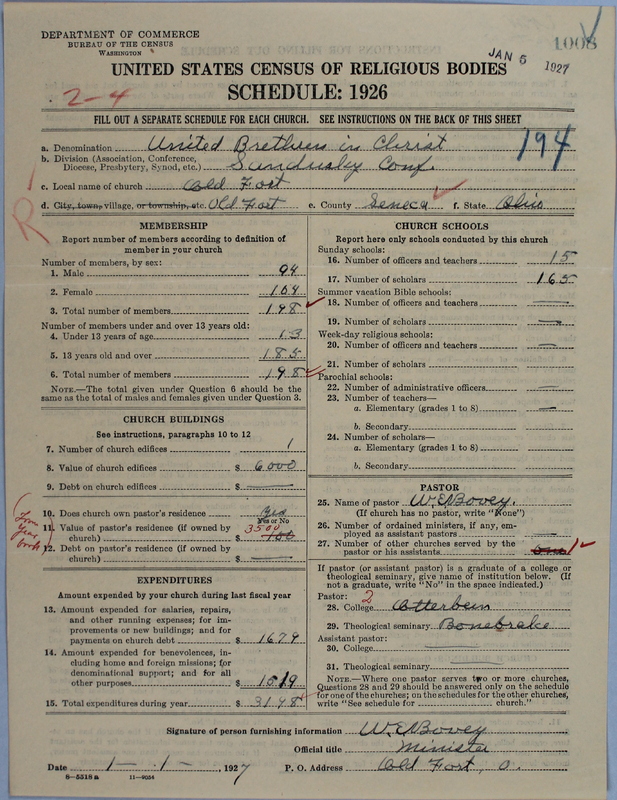 DEPARTMENT OF COMMERCE
BUREAU OF THE CENSUS
WASHINGTON
JAN 5 1927
1008
UNITED STATES CENSUS OF RELIGIOUS BODIES
2-4
SCHEDULE: 1926
FILL OUT A SEPARATE SCHEDULE FOR EACH CHURCH. SEE INSTRUCTIONS ON THE BACK OF THIS SHEET
194
a. Denomination United Brethren in Christ
b. Division (Association, Conference, Diocese, Presbytery, Synod, etc.) Sandusky Conf.
c. Local name of church Old Fort
d. City, town, village, or township, etc. Old Fort e. County Seneca f. State Ohio
R
MEMBERSHIP
Report number of members according to definition of
member in your church
Number of members, by sex:
1. Male 94
2. Female 104
3. Total number of members 198
Number of members under and over 13 years old:
4. Under 13 years of age 13
5. 13 years old and over 185
6. Total number of members 198
NOTE.—The total given under Question 6 should be
same as the total of males and females given under Question 3.
CHURCH BUILDINGS
See instructions, paragraphs 10 to 12
7. Number of church edifices 1
8. Value of church edifices $ 6000
9. Debt on church edifices $ —
10. Does church own pastor's residence Yes
Yes or No
(from Year book)
11. Value of pastor's residence (if owned by
church) $ 3500
12. Debt on pastor's residence (if owned by
church) $ —
EXPENDITURES
Amount expended by your church during last fiscal year
13. Amount expended for salaries, repairs,
and other running expenses; for im-
provements or new buildings; and for
payments on church debt $ 1679
14. Amount expended for benevolences, in-
cluding home and foreign missions; for
denominational support; and for all
other purposes $ 1519
15. Total expenditures during year $ 3198
CHURCH SCHOOLS
Report here only schools conducted by this church
Sunday schools:
16. Number of officers and teachers 15
17. Number of scholars 165
Summer vacation Bible schools:
18. Number of officers and teachers —
19. Number of scholars —
Week-day religious schools:
20. Number of officers and teachers —
21. Number of scholars
Parochial schools:
22. Number of administrative officers —
23. Number of teachers—
a. Elementary (grades 1 to 8) —
b. Secondary
24. Number of scholars—
a. Elementary (grades 1 to 8)
b. Secondary
PASTOR
25. Name of pastor W.E. Bovey.
(If church has no pastor, write "None")
26. Number of ordained ministers, if any, em-
ployed as assistant pastors —
27. Number of other churches served by the
pastor or his assistants one 1
If pastor (or assistant pastor) is a graduate of a college or
theological seminary, give name of institution below. (If
not a graduate, write "No" in the space indicated.)
Pastor: 2
28. College Otterbein
29. Theological seminary Bonebrake
Assistant pastor:
30. College —
31. Theological seminary —
NOTE.—Where one pastor serves two or more churches,
Questions 28 and 29 should be answered only on the schedule
for one of the churches; on the schedules for the other churches,
write "See schedule for church."
Signature of person furnishing information W.E. Bovey
Official title Minister
Date 1-1-, 1927 P. O. Address Old Fort, O.
8-5518a 11-9054